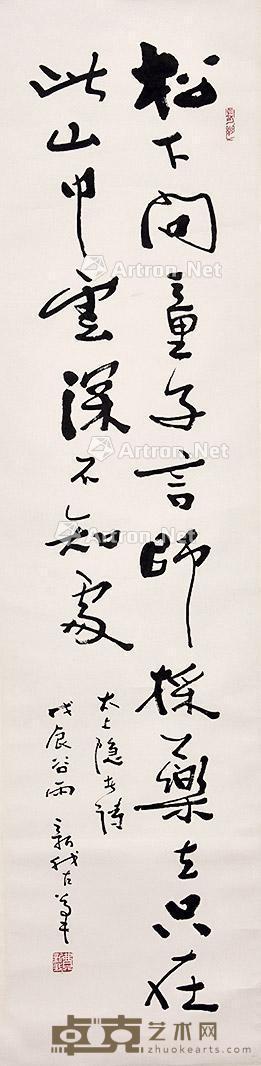 松下问童子言師採藥去只在
此山中雲深不知處
太上隐者诗
戊辰谷雨 新我左筆
Artron.Net
Artron.Net
Artron.Net
Artron.Net
卓克艺术网
zhuokearts.com